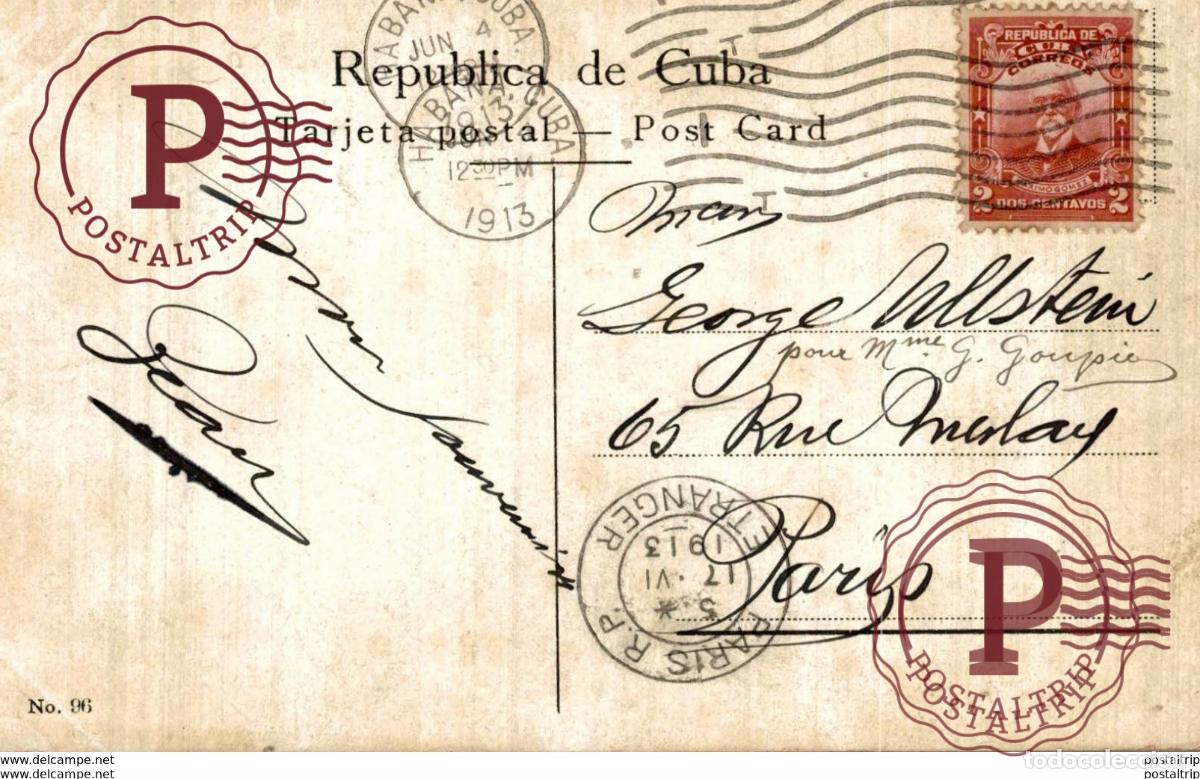 Republica de Cuba
Tarjeta postal — Post Card
HABANA, CUBA.
JUN 4
HABANA, CUBA.
12 30 PM
1913
REPUBLICA DE
CUBA
CORREOS
MAXIMO GOMEZ
2 DOS CENTAVOS 2
George Ullstein
pour Mme G. Goupie
65 Rue Meslay
Paris
PARIS R.P.
ETRANGER
5 *
17 · VI
1913
souvenir
No. 96
P
POSTALTRIP
P
POSTALTRIP
POSTALTRIP
www.postaltrip.net
www.postaltrip.net
todocoleccion
postaltrip
postaltrip